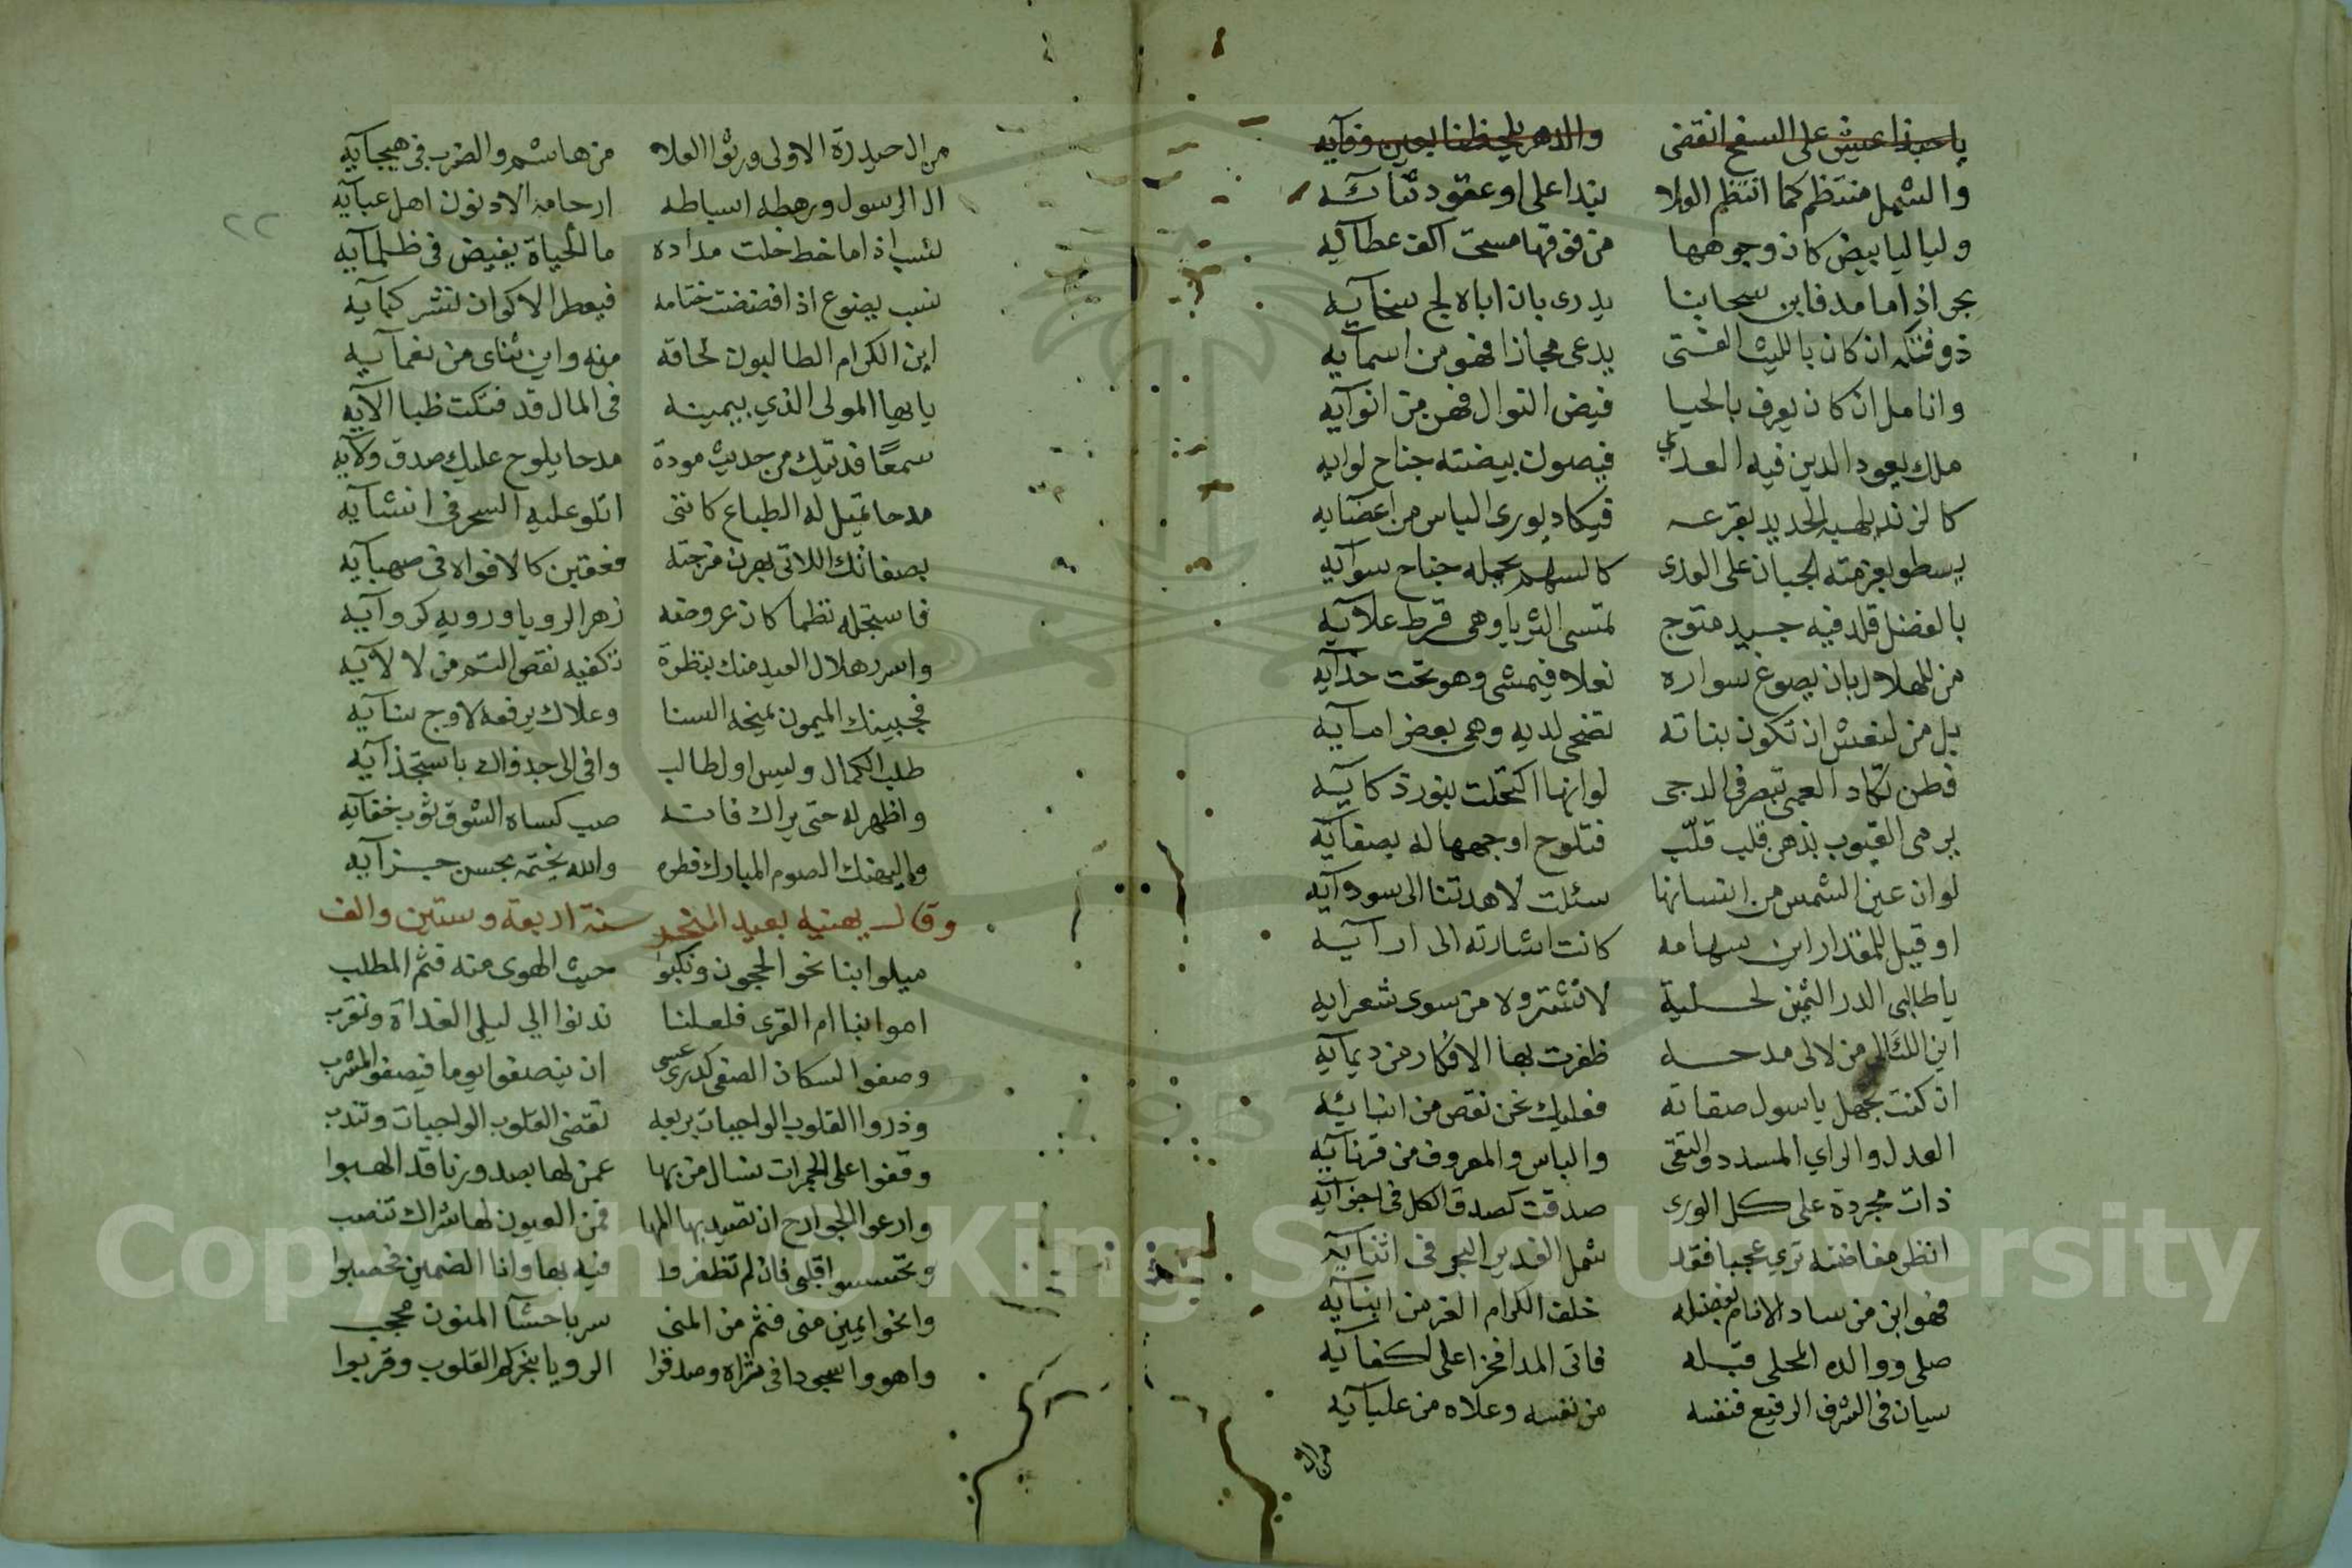 يا حبذا عيش على السفح انقضى والدهر يلحظنا بعين وفآيه
والشمل منتظم كما انتظم الولا بندا على او عقود ثنائه
وليا ليا بيض كان وجوهها من فوقها مسحت اكف عطآئيه
بحر اذا ما مد فاين سحابنا يدرى بان اباه لج سخآيه
ذو فتكه ان كان بالليث الفتى يدعى مجازا فهو من اسمآيه
وانامل ان كان يعرف بالحيا فيض النوال فهن من انوآيه
ملك يعود الدين فيه العدى فيصون بيضته جناح لوايه
كالزند يلهبه الحديد بقرعه فيكاد يورى الباس من اعضايه
يسطو بعزمته الجبان على الورى كالسهم يحمله جناح سوآيه
بالفضل قلد فيه جيد متوج تمسى الثريا وهى قرط علآيه
من للهلال بان يصوغ سواره نعلا فيمشى وهو تحت حذآيه
بل من لنعش ان تكون بناته تضحى لديه وهى بعض امآيه
فطن تكاد العمى تبصر فى الدجى لو انها اكتحلت بنور ذكآيه
يرمى الغيوب بذهن قلب قلّب فتلوح اوجهها له بصفآيه
لو ان عين الشمس من انسانها سئلت لاهدتنا الى سودآيه
او قيل للمقدار اين سهامه كانت اشارته الى ارآيه
يا طالبى الدر الثمين لحلية لا تشتروه من سوى شعرايه
اين اللئالى من لالى مدحه ظفرت بها الافكار من ديمآيه
ان كنت تجهل يا سول صفاته فعليك نحن نقص من انبائه
العدل والراي المسدد والتقى والباس والمعروف من قرنآيه
ذات مجردة على كل الورى صدقت كصدق الكل فى اجزآيه
انظر مفاضته ترى عجبا فقد شمل الغدير البحر فى اثنآيه
فهو ابن من ساد الانام بفضله خلف الكرام الغر من ابنآيه
صلى ووالده المحلى قبله فاتى المدا فخرا على اكفآيه
سيان فى الشرف الرفيع فنفسه من نفسه وعلاه من عليآيه
من ال
٢٢
من ال حيدرة الاولى ورثوا العلا من هاشم والضرب فى هيجآيه
ال الرسول ورهطه اسباطه ارحامه الادنون اهل عبآيه
نسب اذا ما خط خلت مداده مآ الحياة يفيض فى ظلمآيه
نسب يضوع اذا فضضت ختامه فيعطر الاكوان نشر كمآيه
اين الكرام الطالبون لحاقه منه واين ثناى من نعمآيه
يا ايها المولى الذي بيمينه فى المال قد فتكت ظبا الآيه
سمعًا فديتك من حديث مودة مدحا يلوح عليك صدق ولآيه
مدحا تميل له الطباع كاننى اتلو عليه السحر فى انشآيه
بصفاتك اللاتى بهرن مزجته فعقبن كالافواه فى صهبآيه
فاستجله نظما كان عروضه زهر الرويا ورويه كروآيه
واسرر هلال العيد منك بنظرة تكفيه نقص التم من لالآيه
فجبينك الميمون يمنحه السنا وعلاك يرفعه لاوج سنآيه
طلب الكمال وليس اول طالب وافى الى جدواك باستجذآيه
واظهر له حتى يراك فانه صب كساه الشوق ثوب خفآيه
وليهنك الصوم المبارك فطره والله يختمه بحسن جزآيه
وقال يهنيه بعيد النحر سنة اربعة وستين والف
ميلوا بنا نحو الحجون ونكبوا حيث الهوى منه فثم المطلب
اموا بنا ام القرى فلعلنا ندنوا الى ليلى الغداة ونقرب
وصفوا لسكان الصفى كدرى عسى ان ينصفوا يوما فيصفو المشرب
وذروا القلوب الواجبات بربعه تقضى القلوب الواجبات وتندب
وقفوا على الجمرات نسال من بها عمن لها بصدورنا قد الهبوا
وارعوا الجوارح ان تصيد بها المها فمن العيون لها شراك تنصب
وتحسسوا قلبى فان لم تظفروا فيه بها وانا الضمين فحصبوا
وانحوا يمين منى فثم من المنى سر باحشآ المنون محجب
واهووا سجودا فى ثراه وصدقوا الرويا بنحركم القلوب وقربوا
Copyright © King Saud University
1957